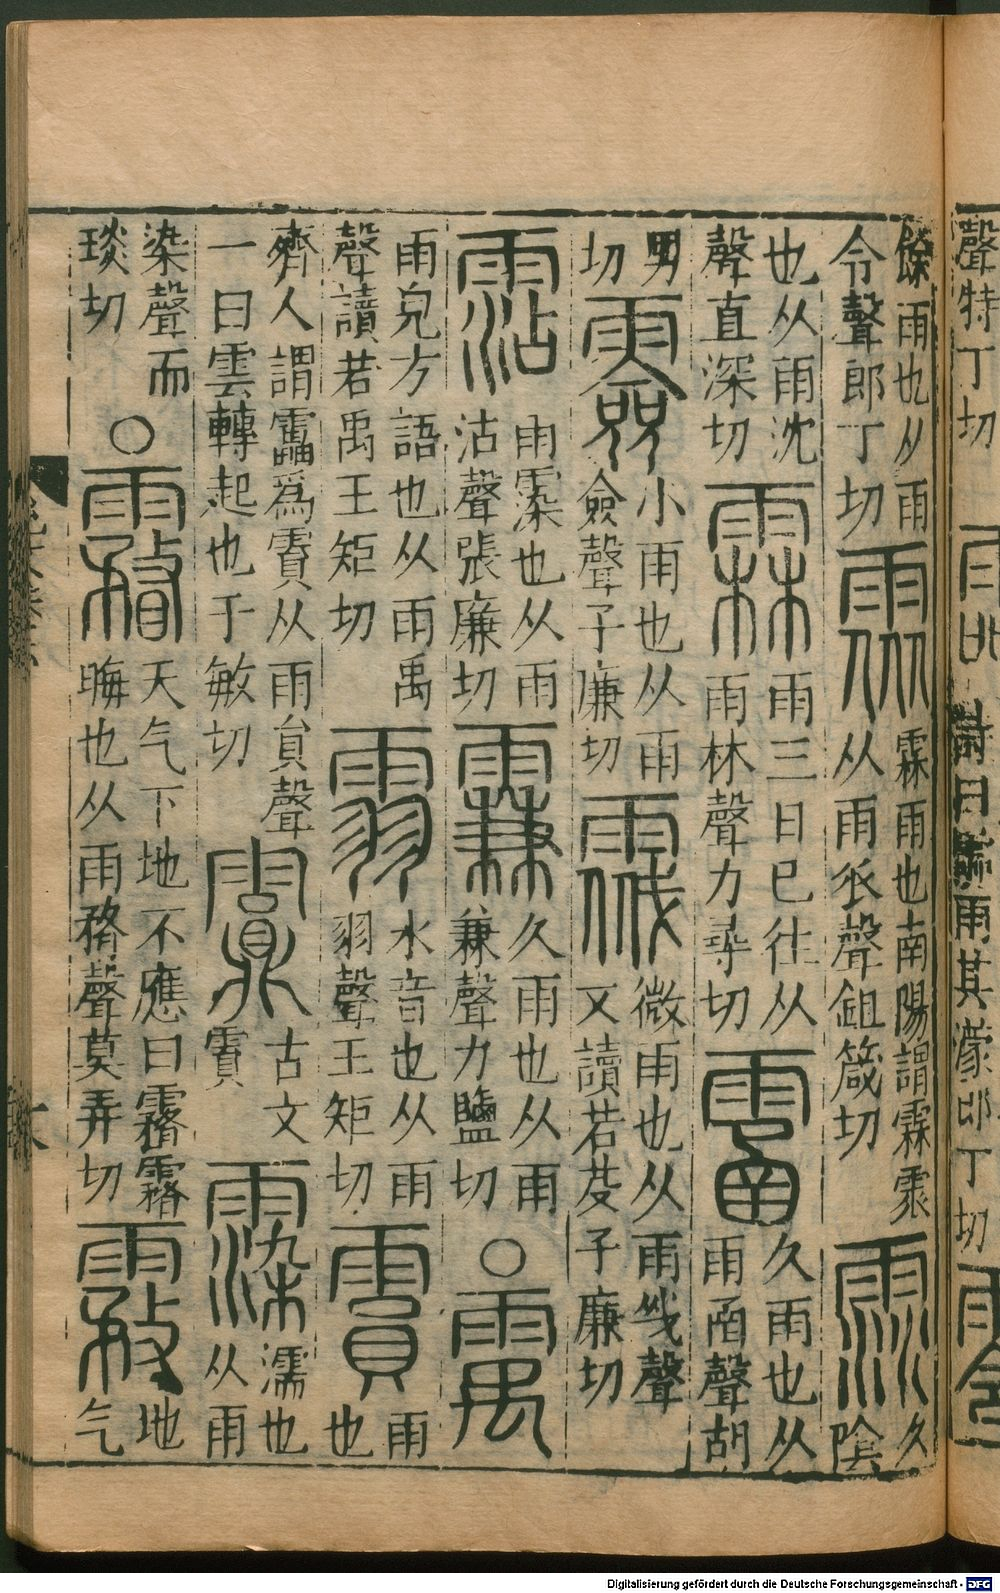 聲特丁切
詩曰霝雨其濛郎丁切
餘雨也从雨令聲郎丁切
䨏霖雨也南陽謂霖䨏从雨𠂢聲鉏箴切
霃久陰
也从雨沈聲直深切
霖雨三日已往从雨林聲力尋切
䨡久雨也从雨圅聲胡
男切
𩆷小雨也从雨僉聲子廉切
䨘微雨也从雨𢦒聲又讀若芟子廉切
霑雨䨙也从雨沾聲張廉切
䨬久雨也从雨兼聲力鹽切
○䨞
雨皃方語也从雨禹聲讀若禹王矩切
䨒水音也从雨羽聲王矩切
霣雨也
齊人謂靁爲霣从雨員聲一曰雲轉起也于敏切
𩇓古文霣
䨙濡也从雨
染聲而琰切
○霿天气下地不應曰霿霿晦也从雨瞀聲莫弄切
霚地气